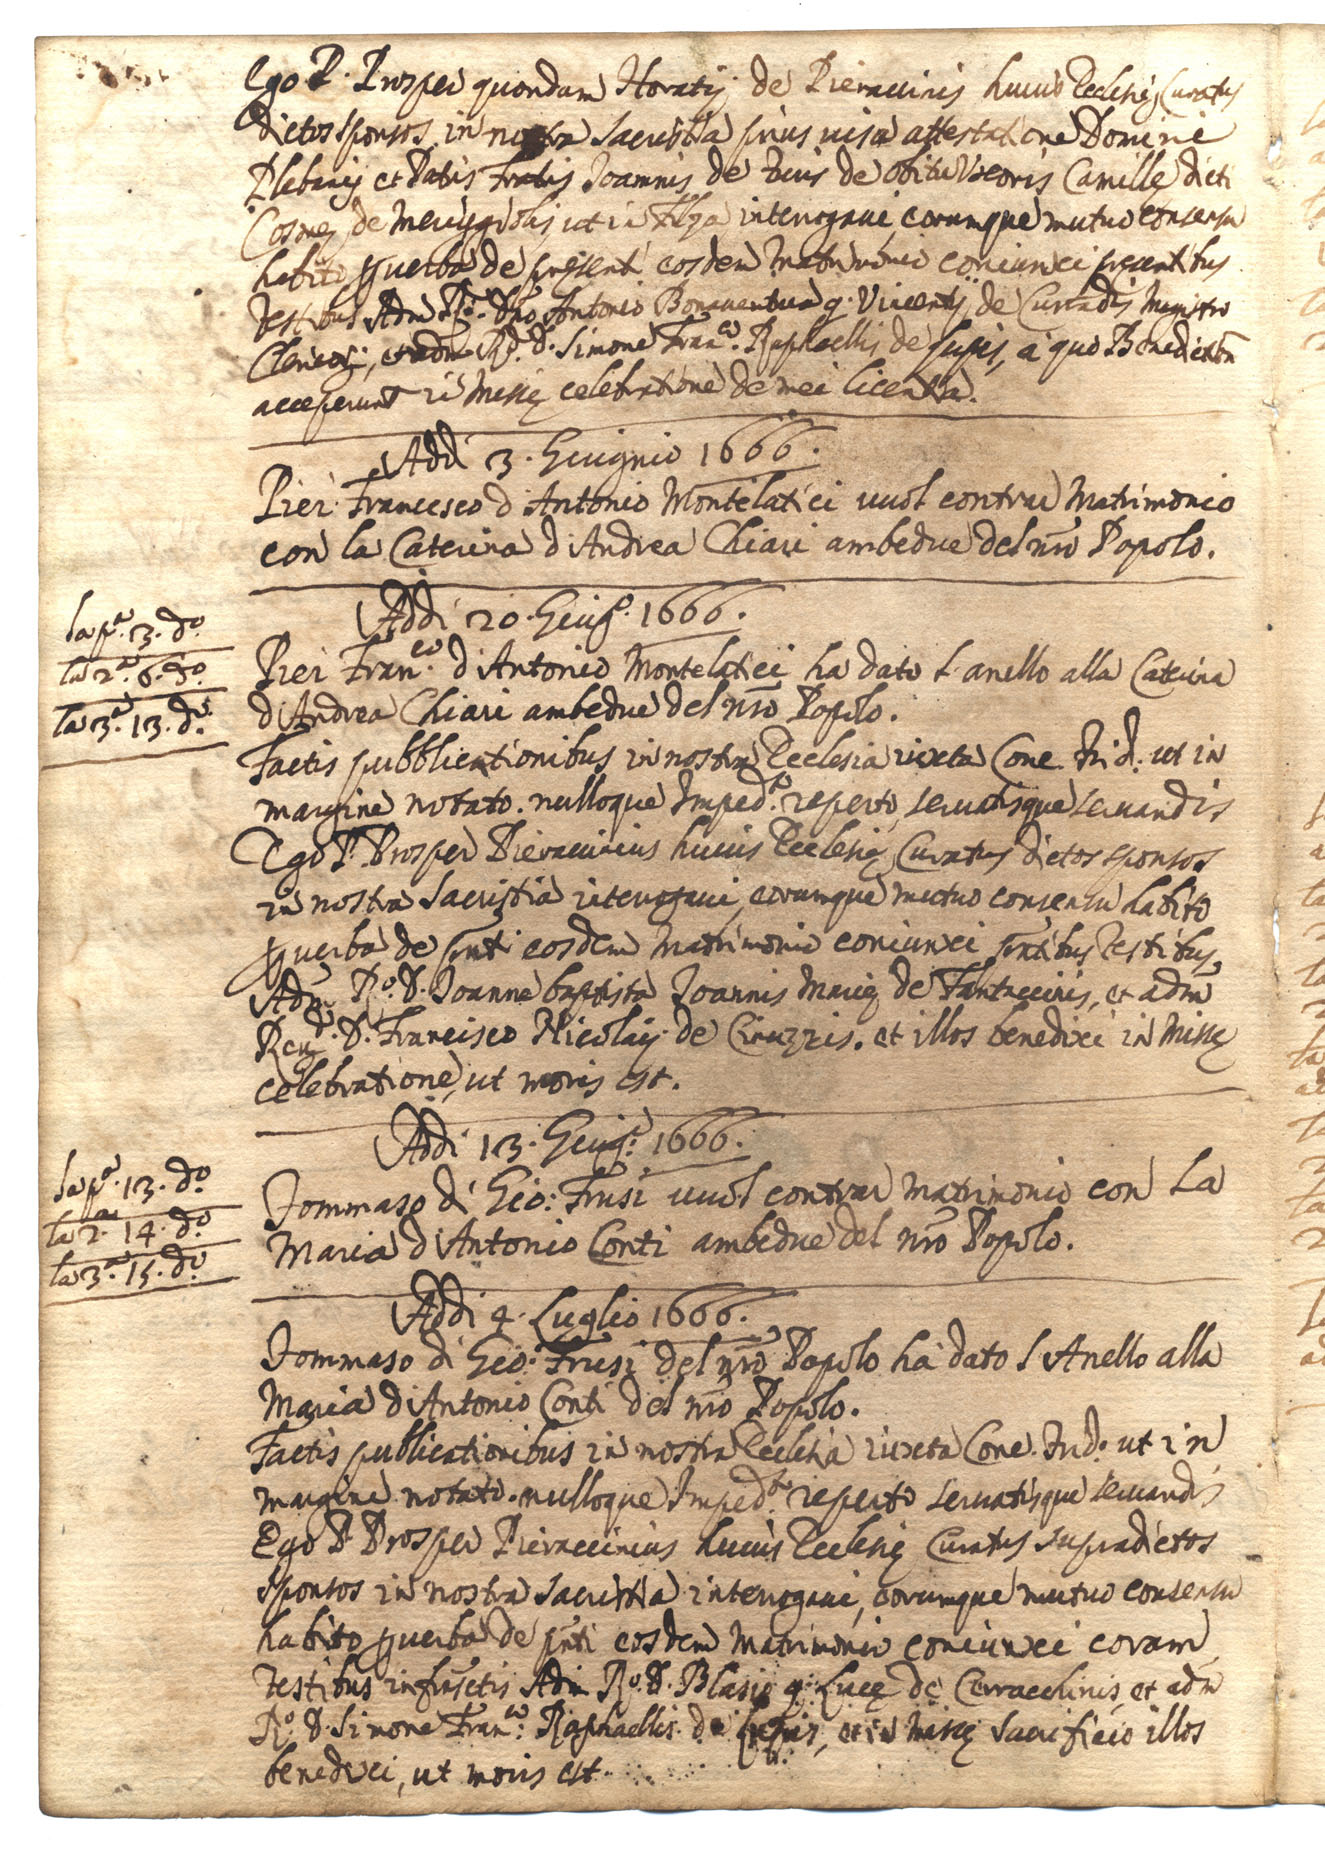 Ego P. Prosper quondam Horatij de Pieraccinis huius Ecclesię Curatus
dictos sponsos in nostra Sacristia prius visa attestatione Domini
Plebanij et Patris Fratris Joannis de de obitu Uxoris Camillę dicti
Cosmę de ut in Filza interrogavi eorumque mutuo consensu
habito p verba de presenti eosdem Matrimonio coniunxi presentibus
Testibus Adm Rdo. Dño Antonio Bonaventura q. Vincentij de Curradis Magistro
Clericor, et adm Rdo. D. Simone Fran.co Raphaellis de Lupis, a quo Benedictionem
acceperunt in Missę celebratione de mei licentia.
Addi 3. Giugnio 1666.
Pier Francesco d'Antonio Montelatici vuol contrar Matrimonio
con la Caterina d'Andrea Chiari ambedue del nro Popolo.
Addi 20. Giug.o 1666.
la p.a 3. do.
la 2.a 6. do.
la 3.a 13. do.
Pier Fran.co d'Antonio Montelatici ha dato l'anello alla Caterina
d'Andrea Chiari ambedue del nro Popolo.
Factis pubblicationibus in nostra Ecclesia iuxta Conc. Trid. ut in
margine notato. nulloque Imped.to reperto, servatisque servandis
Ego P. Prosper Pieraccinius huius Ecclesię Curatus dictos sponsos
in nostra Sacristia interrogavi, eorumque mutuo consensu habito
p verba de pnti eosdem Matrimonio coniunxi pntibus Testibus,
Adm Rdo. D. Joanne baptista Joannis Marię de Fantaccinis, et adm
Reu.do D. Francisco Nicolaij de Ciruzzis. et illos benedixi in Missę
celebratione, ut moris est.
Addi 13. Giug.o 1666.
la p.a 13. do.
la 2.a 14. do.
la 3.a 15. do.
Tommaso di Gio: Frusi vuol contrar Matrimonio con La
Maria d'Antonio Conti ambedue del nro Popolo.
Addi 4. Luglio 1666.
Tommaso di Gio: Frusi del nro Popolo ha dato l'Anello alla
Maria d'Antonio Conti del nro Popolo.
Factis publicationibus in nostra Ecclesia iuxta Conc. Trid. ut in
margine notato. nulloque Imped.to reperto servatisque servandis
Ego P. Prosper Pieraccinius huius Ecclesię Curatus supradictos
sponsos in nostra Sacristia interrogavi, eorumque mutuo consensu
habito p verba de pnti eosdem Matrimonio coniunxi coram
Testibus infrsctis Adm Rdo. D. Blasio q. Lucę de Cerracchinis, et adm
Rdo. D. Simone Fran.co Raphaellis de Lupis, et in Missę sacrificio illos
benedixi, ut moris est.